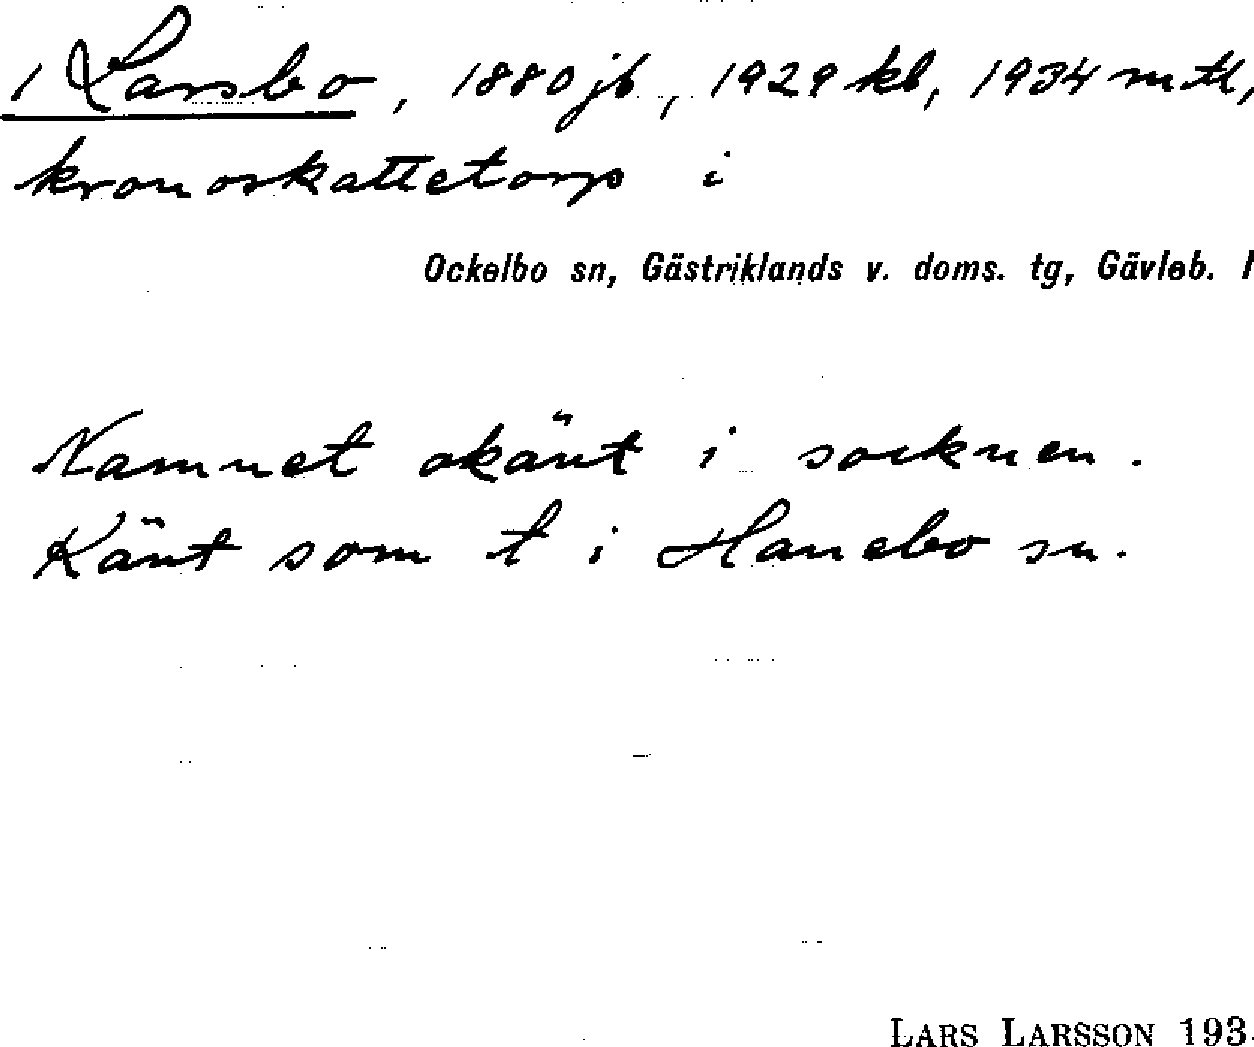 1 Larsbo, 1880 jb, 1929 kb, 1934 mtl,
kronoskattetorp i
Ockelbo sn, Gästriklands v. doms. tg, Gävleb. l
Namnet okänt i socknen.
Känt som t i Hanebo sn.
LARS LARSSON 193